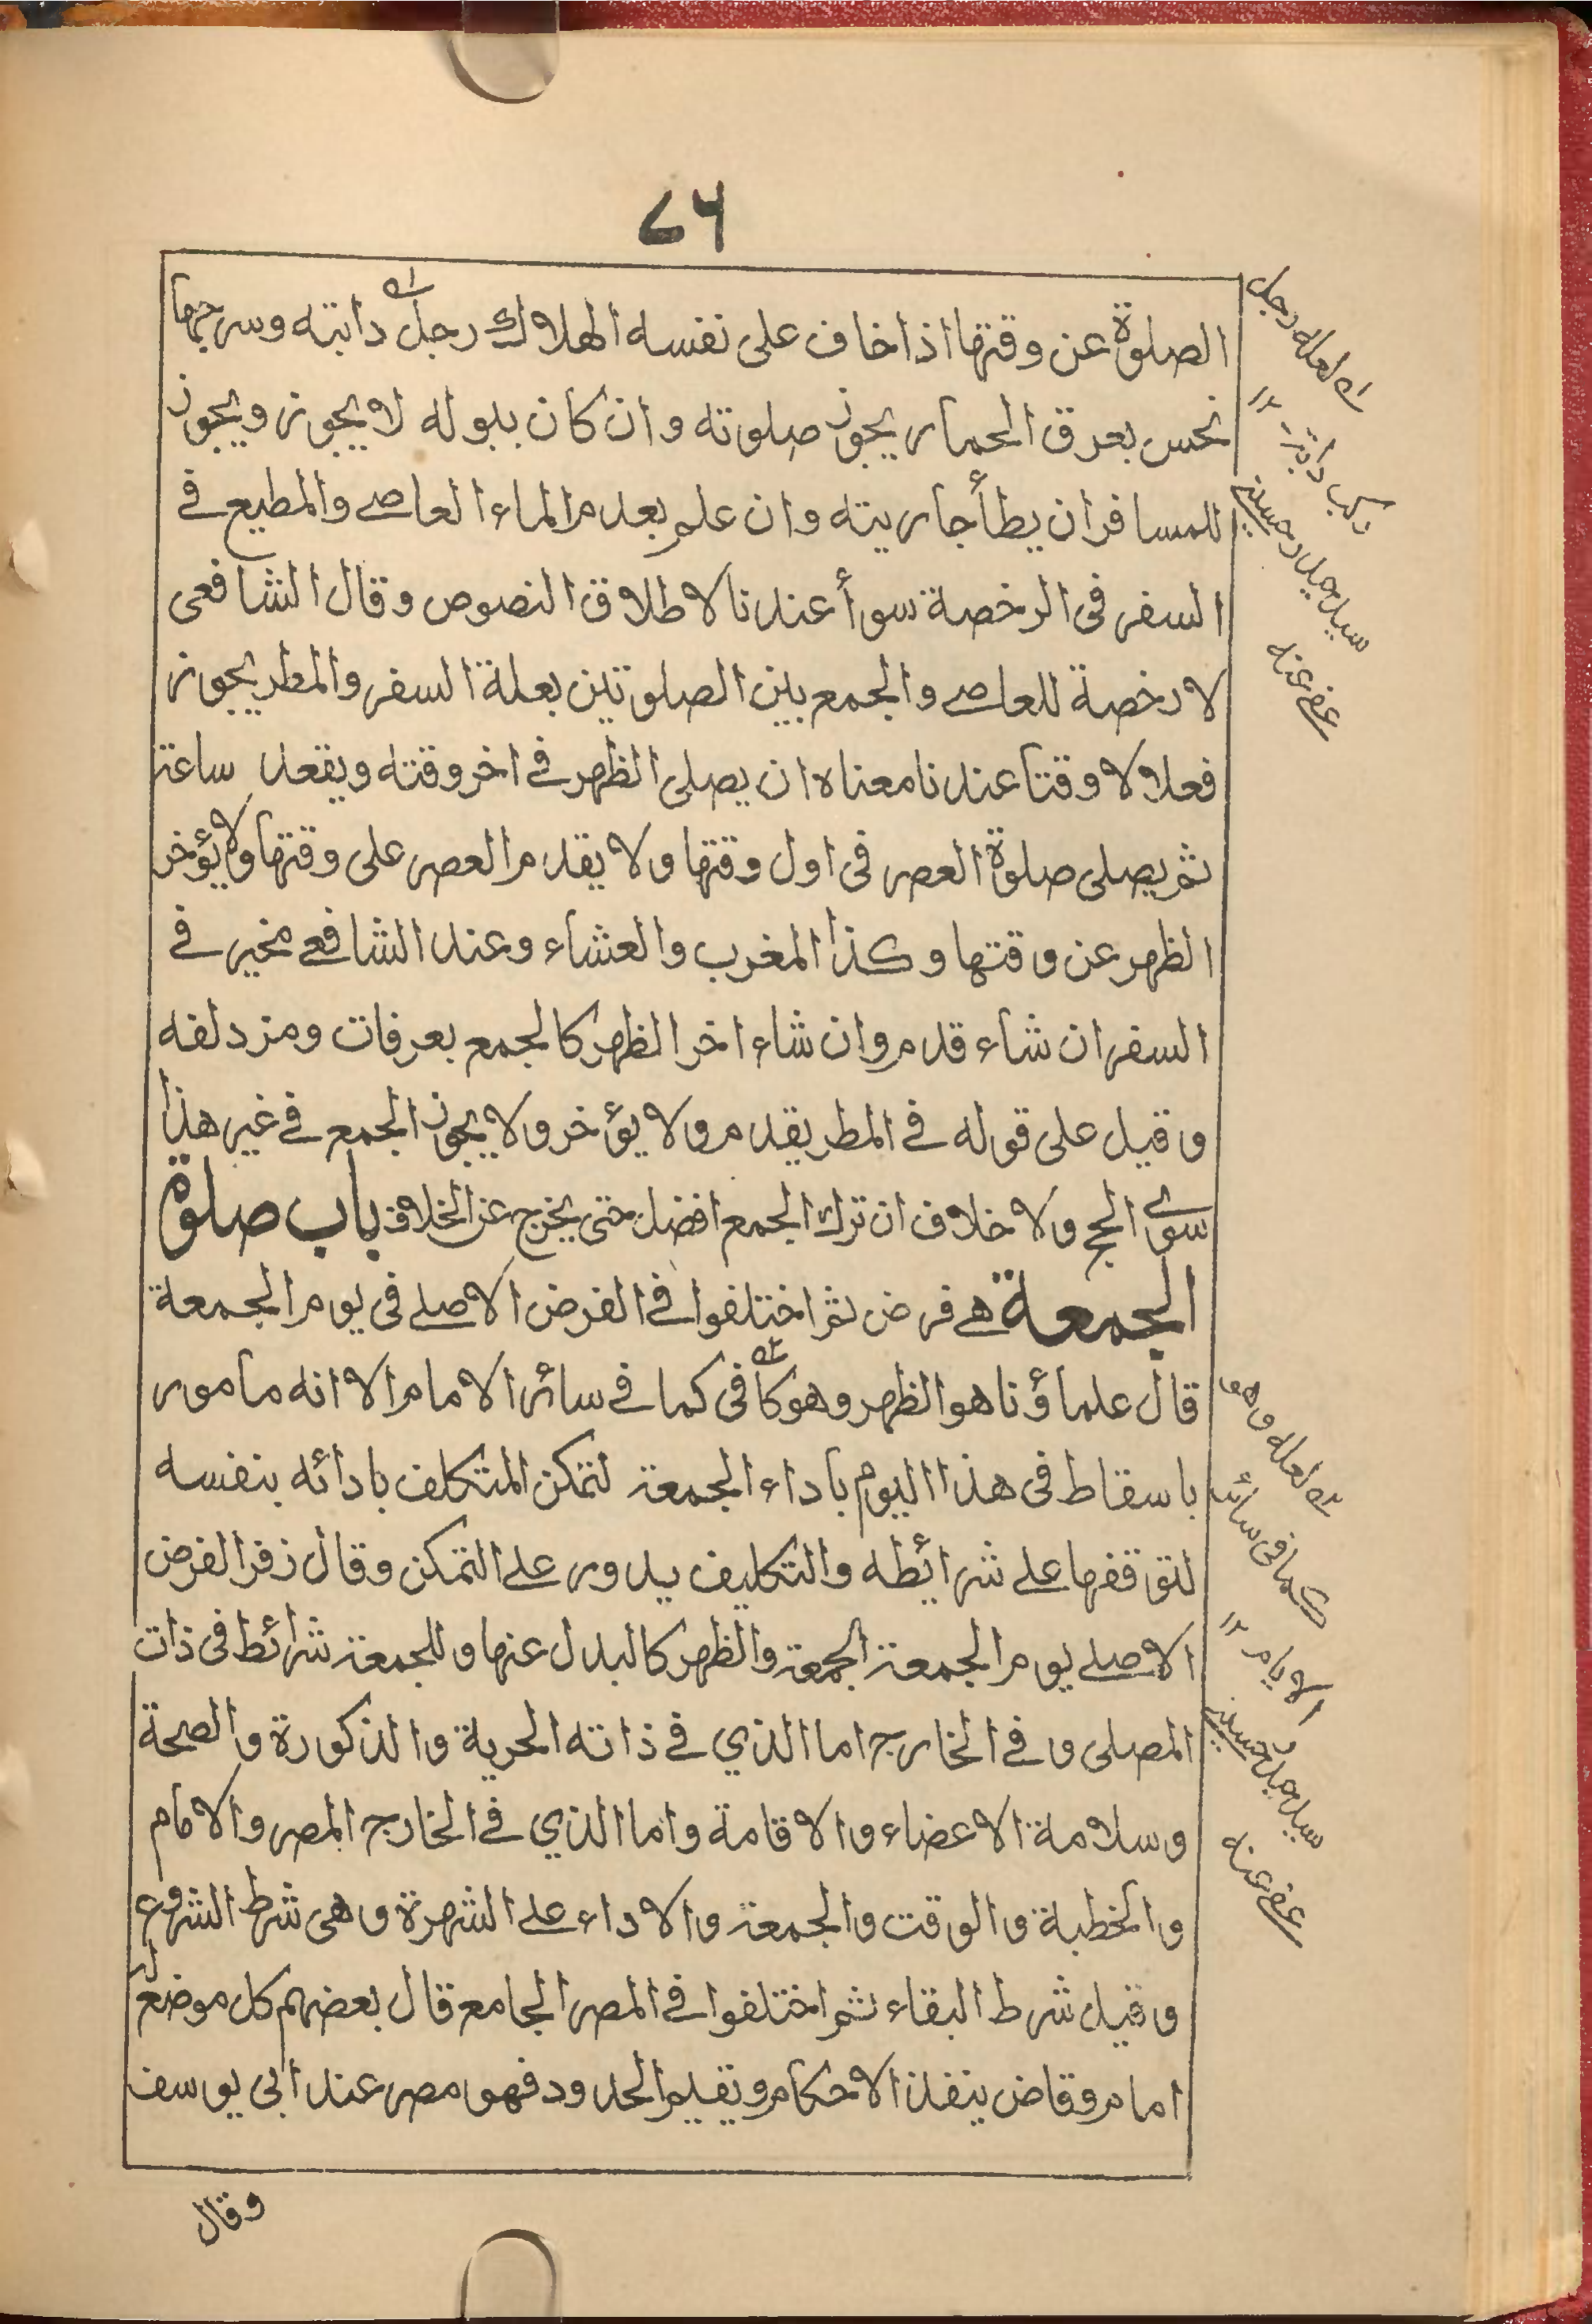 ٧٦
الصلوة عن وقتها اذا خاف على نفسه الهلاك رجل دابته وسرجها
نجس بعرق الحمار يجوز صلوته وان كان ببوله لا يجوز ويجوز
للمسافر ان يطأ جاريته وان علم بعدم الماء العاصے والمطيع فے
السفر فى الرخصة سوأ عندنا لاطلاق النصوص وقال الشافعى
لا رخصة للعاصے والجمع بين الصلوتين بعلة السفر والمطر يجوز
فعلا لا وقتا عندنا معناه ان يصلى الظهر فے اخر وقته ويقعد ساعة
ثم يصلى صلوة العصر فى اول وقتها ولا يقدم العصر على وقتها ولا يؤخر
الظهر عن وقتها وكذا المغرب والعشاء وعند الشافعے مخير فے
السفر ان شاء قدم وان شاء اخر الظهر كالجمع بعرفات ومزدلفه
وقيل على قوله فے المطر يقدم ولا يؤخر ولا يجوز الجمع فے غير هذا
سوى الحج ولا خلاف ان ترك الجمع افضل حتى يخرج عن الخلاف باب صلوة
الجمعة هے فرض ثم اختلفوا فے الفرض الاصلے فى يوم الجمعة
قال علماؤنا هو الظهر وهو كافى كما فے سائر الامام الا انه مامور
باسقاط فى هذا اليوم باداء الجمعة لتمكن المتكلف بادائه بنفسه
لتوقفها علے شرائطه والتكليف يدور علے التمكن وقال زفر الفرض
الاصلے يوم الجمعة الجمعة والظهر كالبدل عنها وللجمعة شرائط فى ذات
المصلى وفے الخارج اما الذي فے ذاته الحرية والذكورة والصحة
وسلامة الاعضاء والاقامة واما الذي فے الخارج المصر والامام
والخطبة والوقت والجمعة والاداء علے الشهرة وهى شرط الشروع
وقيل شرط البقاء ثم اختلفوا فے المصر الجامع قال بعضهم كل موضع له
امام وقاض ينفذ الاحكام ويقيم الحدود فهو مصر عند ابى يوسف
وقال
له لعله رجل
ركب دابة ۔ ١٢
سيد حسينے
عفے عنه
٢ه لعله وهو
كما فى سائر
الايام ١٢
سيد حسينے
عفے عنه